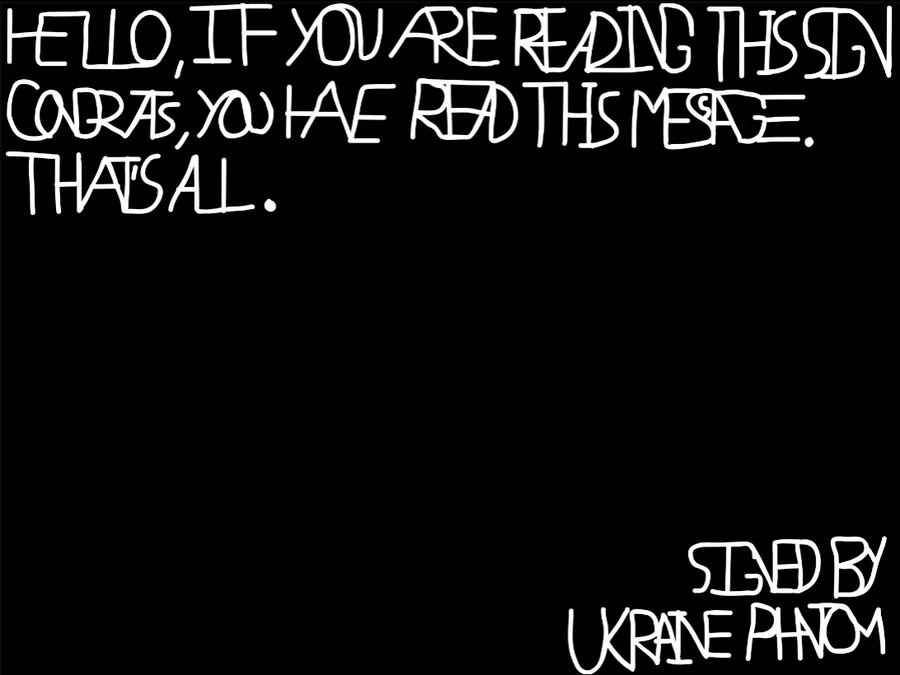 HELLO, IF YOU ARE READING THIS SIGN
CONGRATS, YOU HAVE READ THIS MESSAGE.
THAT'S ALL.
SIGNED BY
UKRAINE PHATOM